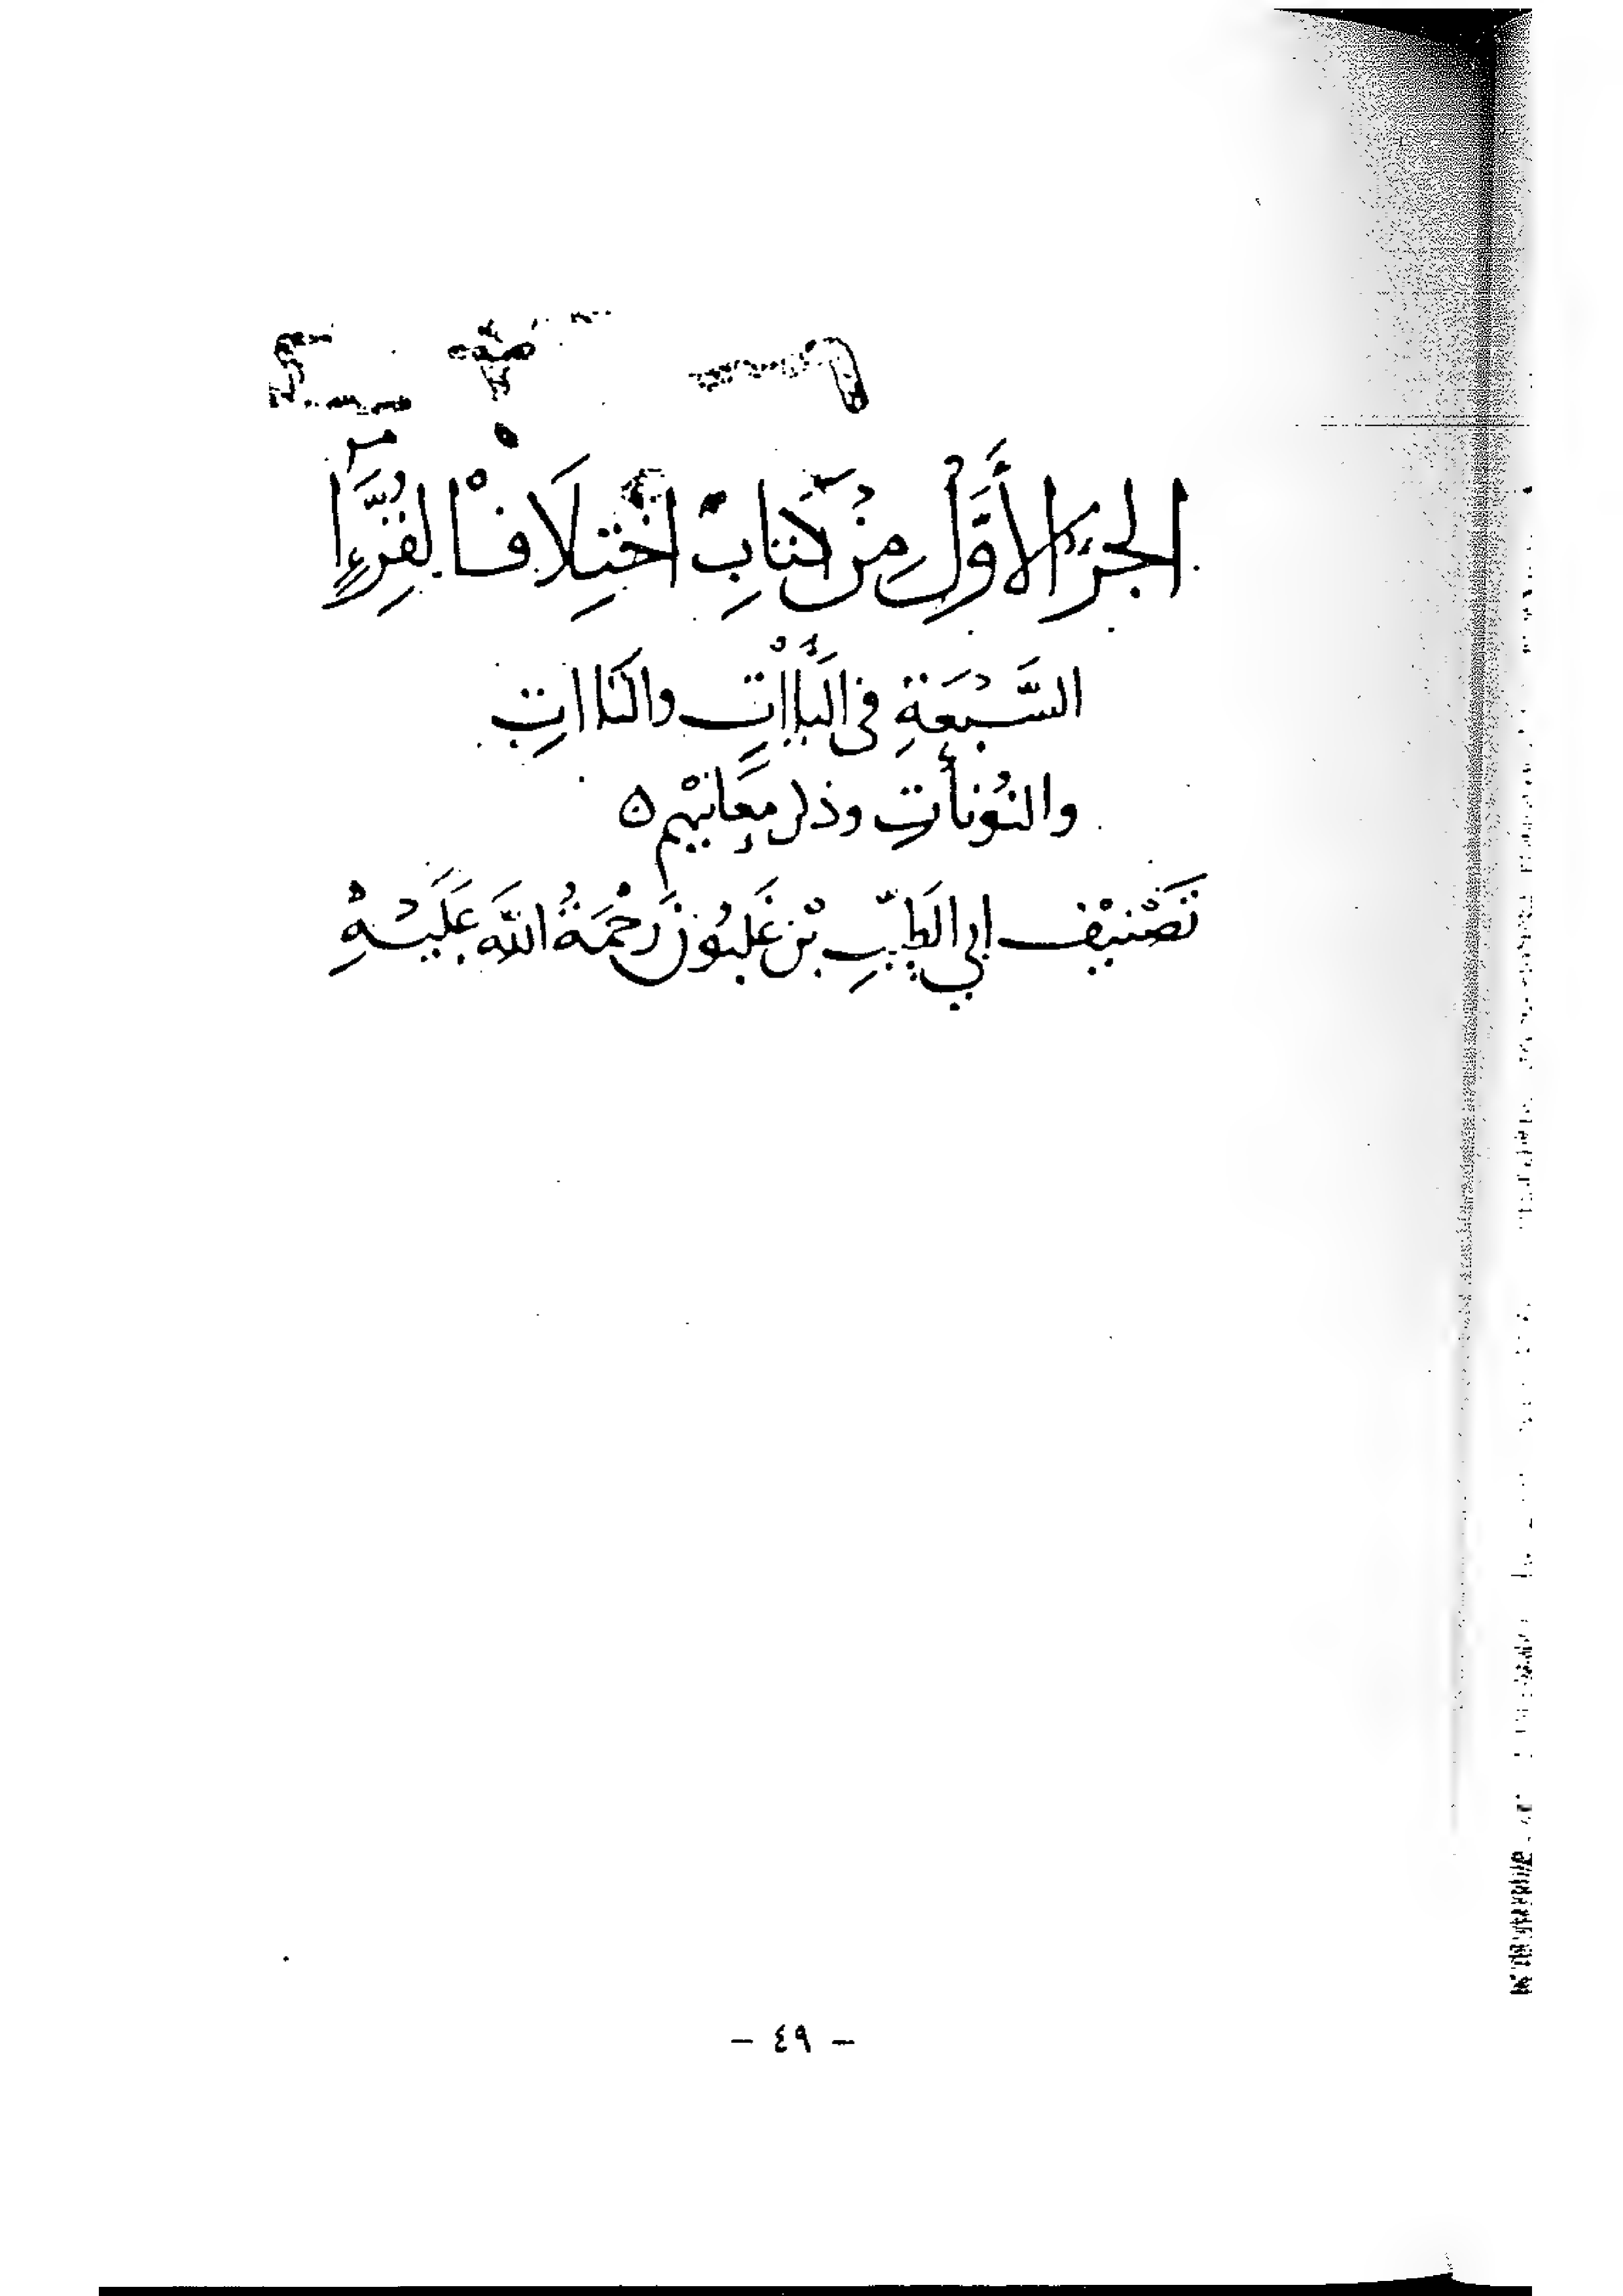 الجزء الأَوَّلِ مِنْ كتَابِ اخْتِلَافْ القُرَّاءِ
السَّبْعَةِ في اليَاأتِ والتَاأتِ
والنُونأتِ وذكر معَانيْهم ٥
تَصْنيْف ابي الطَيّبِ بْن غَلبُون رَحْمَةُ اللَّه عَلَيْهِ
- ٤٩ -